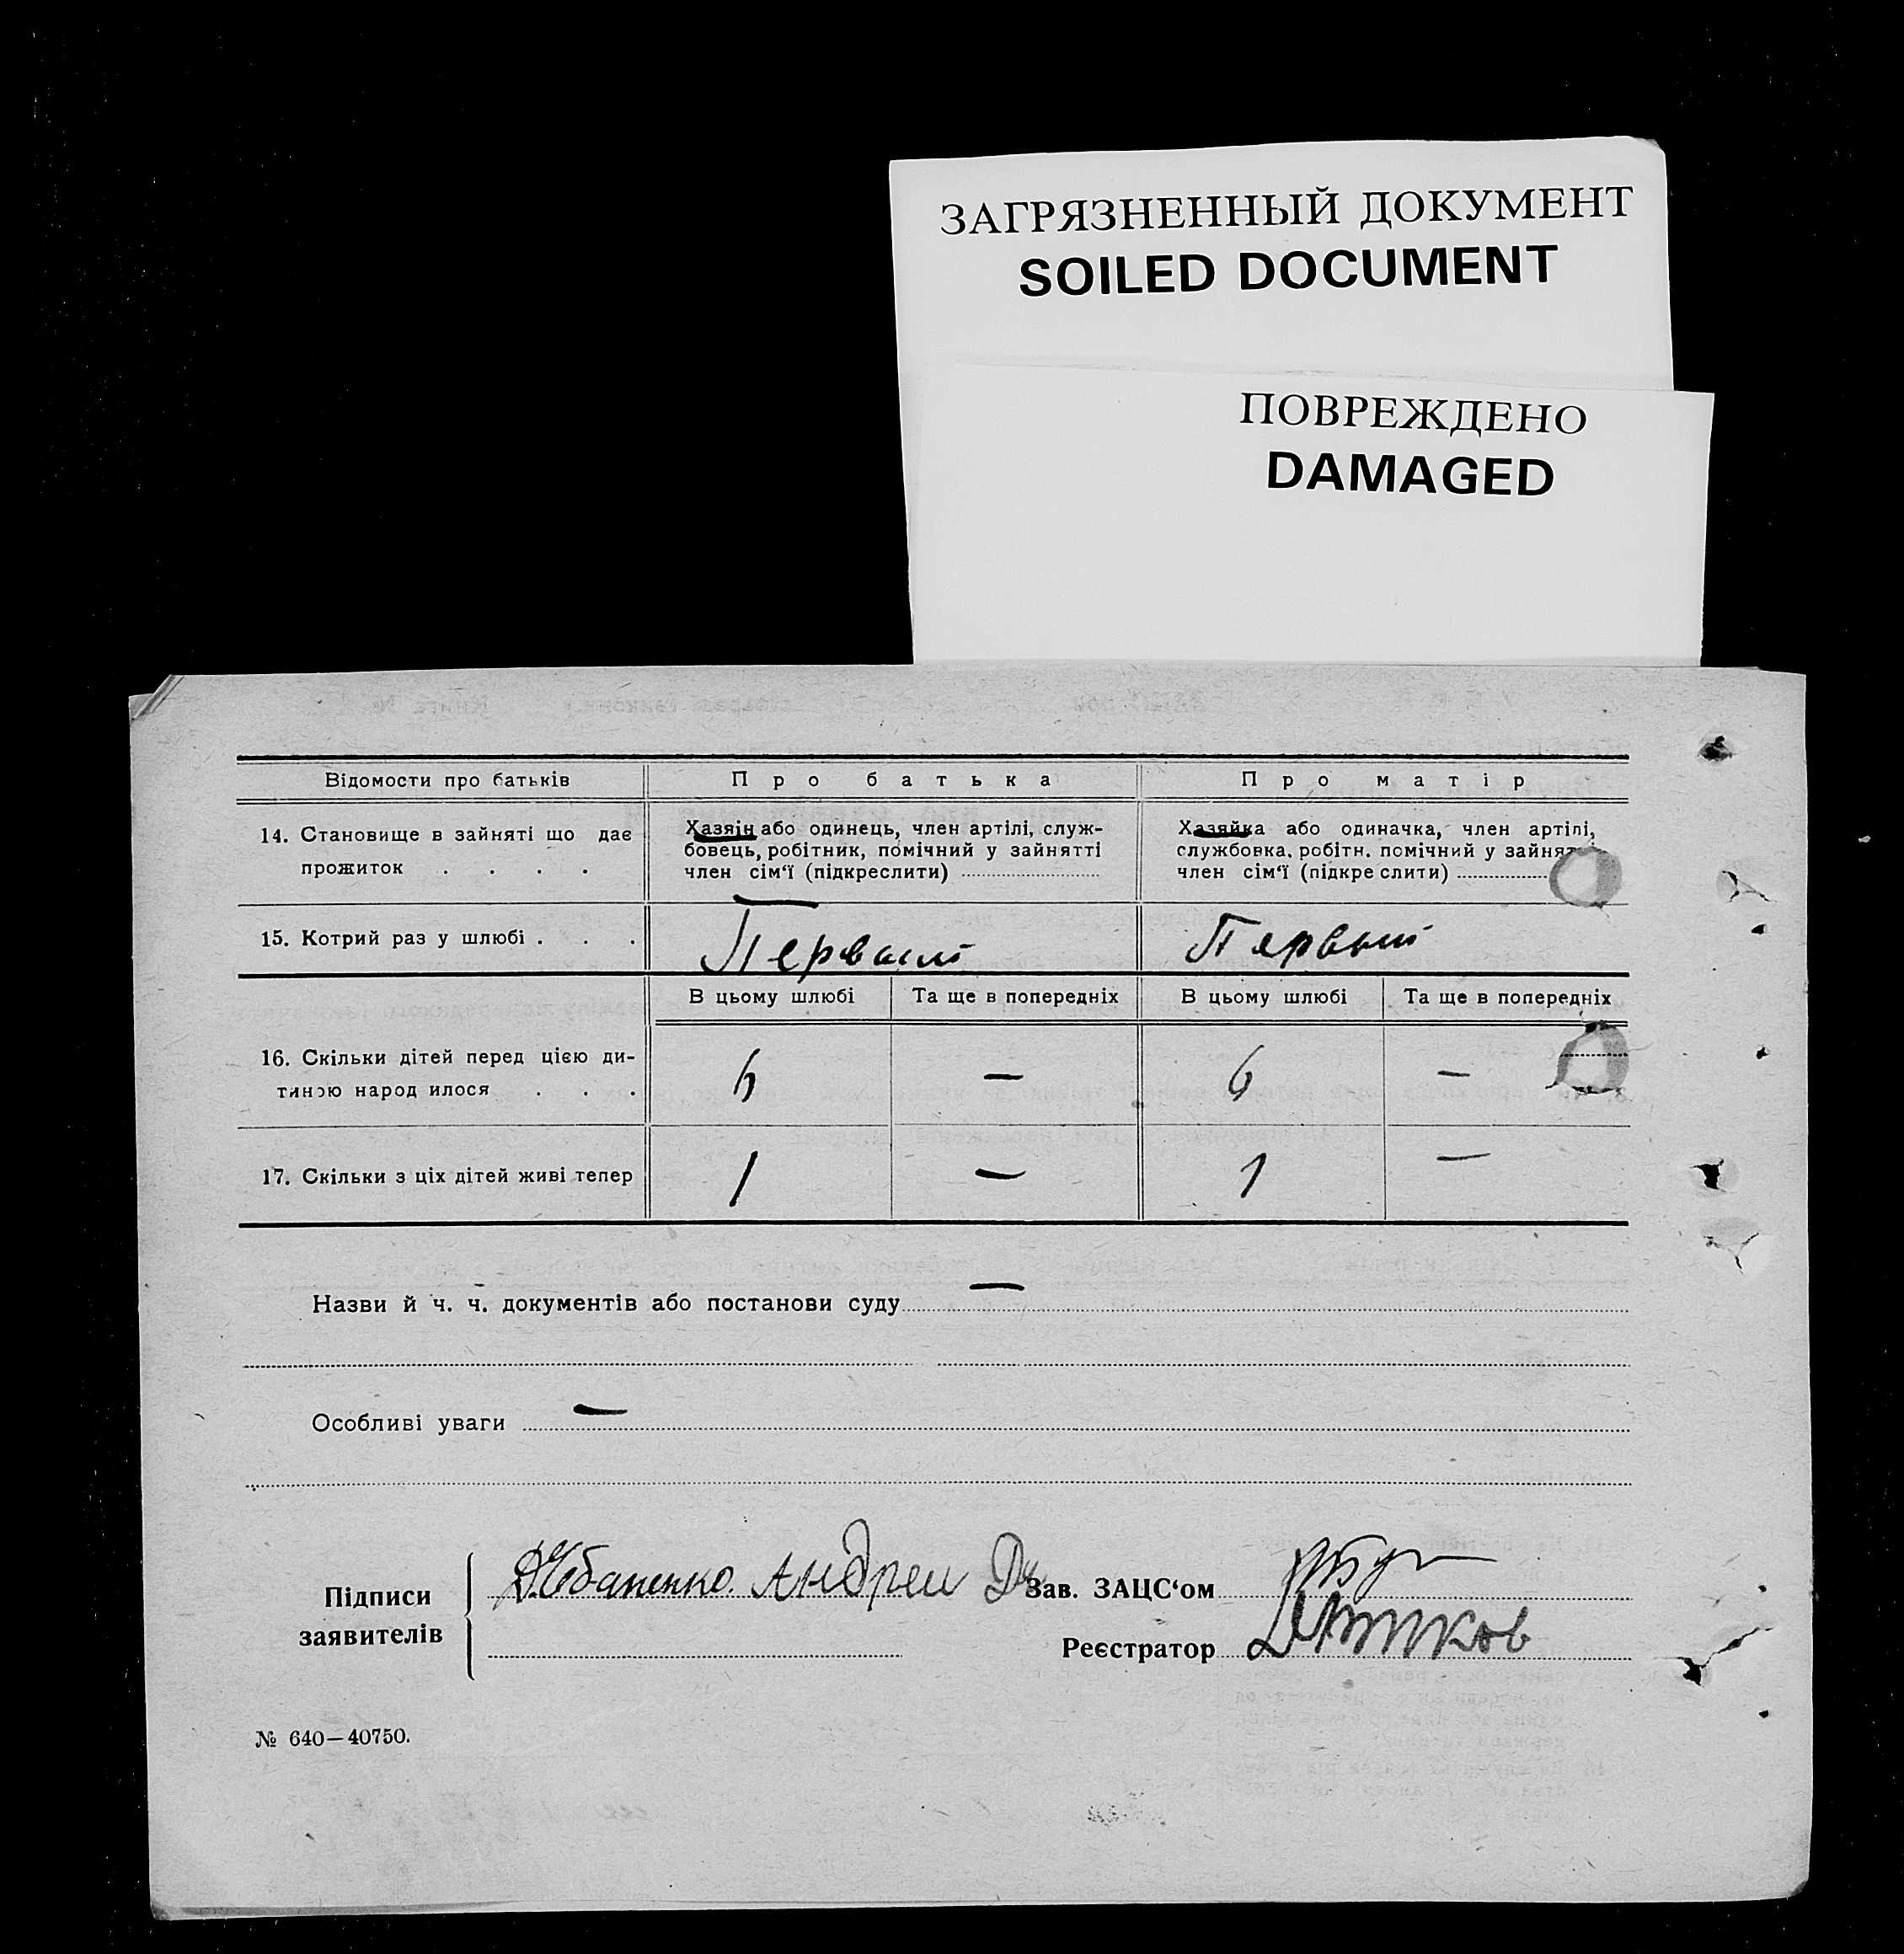 ЗАГРЯЗНЕННЫЙ ДОКУМЕНТ
SOILED DOCUMENT
ПОВРЕЖДЕНО
DAMAGED
Відомости про батьків
Про батька
Про матір
14. Становище в зайняті що дає
прожиток . . . .
Хазяїн або одинець, член артілі, служ-
бовець, робітник, помічний у зайнятті
член сім‘ї (підкреслити)
Хазяйка або одиначка, член артілі,
службовка, робітн. помічний у
член сім‘ї (підкреслити)
15. Котрий раз у шлюбі . . .
Первый
Первый
В цьому шлюбі
Та ще в попередніх
В цьому шлюбі
Та ще в попередніх
16. Скільки дітей перед цією ди-
тиною народилося . . .
6 — 6 —
17. Скільки з ціх дітей живі тепер
1 — 1 —
Назви й ч. ч. документів або постанови суду —
Особливі уваги —
Підписи
заявителів
Андрей
Зав. ЗАЦС‘ом
Реєстратор
№ 640—40750.